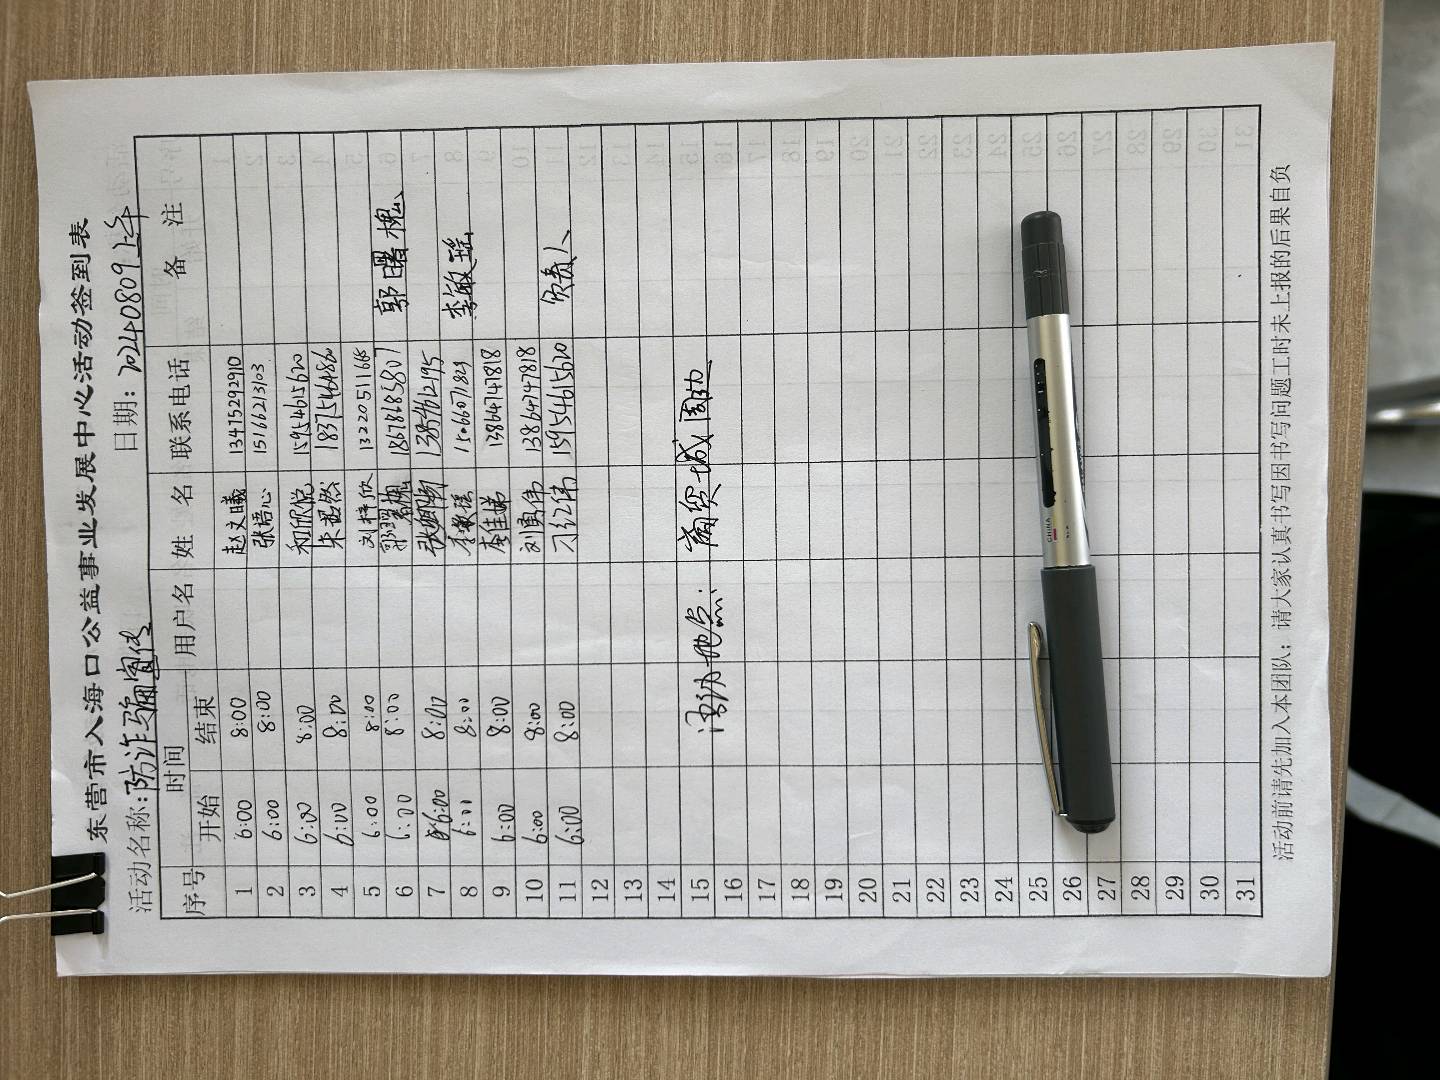 东营市入海口公益事业发展中心活动签到表
活动名称:防诈骗宣传 日期:20240809上午
序号 时间 用户名 姓 名 联系电话 备 注
开始 结束
1 6:00 8:00 赵文曦 13475292910
2 6:00 8:00 张语心 15166213103
3 6:00 8:00 和欣悦 15954615620
4 6:00 8:00 朱昱然
5 6:00 8:00 刘梓欣 13220511668
6 6:00 8:00 郭曙槐 18678685807 郭曙槐
7 6:00 8:00 13854612195
8 6:00 8:00 李敏瑶 15066071829 李敏瑶
9 6:00 8:00 李佳娣 13864747818
10 6:00 8:00 刘勇伟 13864747818
11 6:00 8:00 刁红伟 15954615620 负责人
12
13
14
15 活动地点:商贸城周边
16
17
18
19
20
21
22
23
24
25
26
27
28
29
30
31
活动前请先加入本团队;请大家认真书写因书写问题工时未上报的后果自负
CHINA